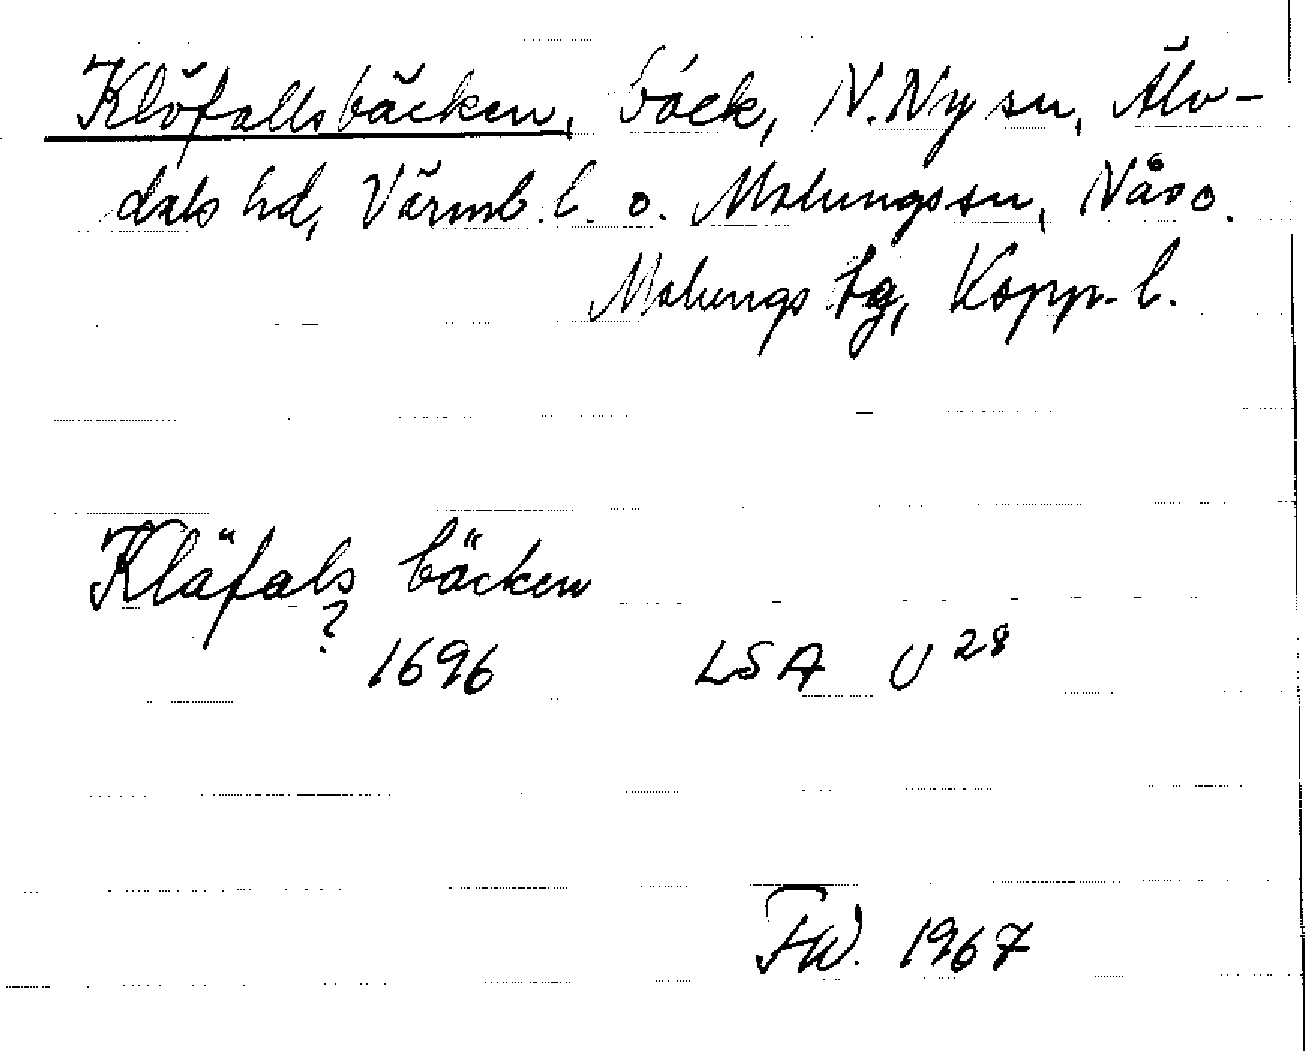 Klöfallsbäcken, bäck, N. Ny sn, Älv-
dals hd, Värml. l. o. Malungs sn, Nås o.
Malungs tg, Kopp. l.
Kläfals bäcken
?
1696 LSA U 28
F.W. 1967